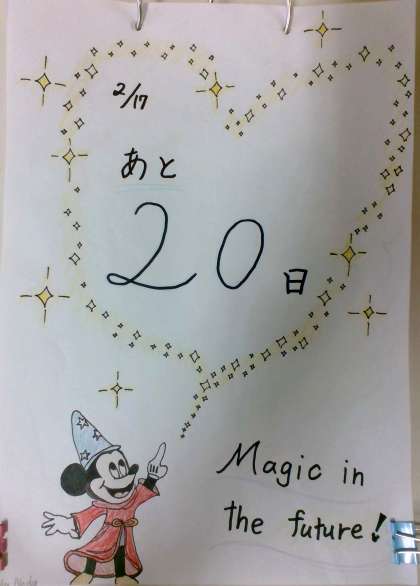 2/17
あと
20日
Magic in
the future!